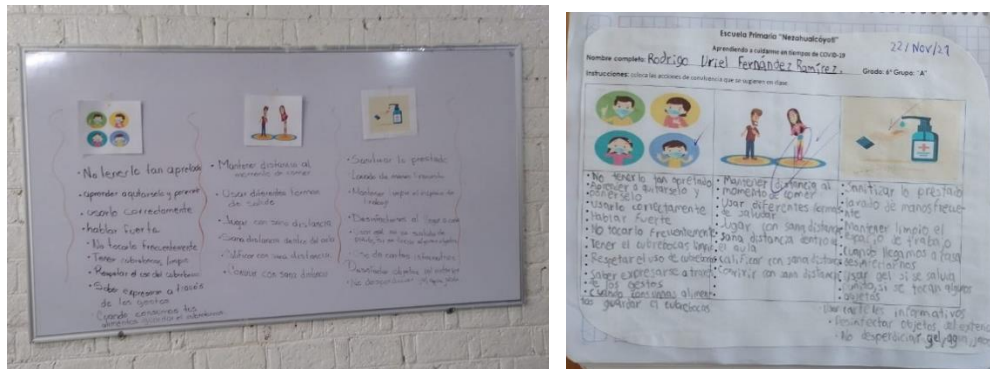 No tenerlo tan apretado
aprender a quitarselo y ponerselo
usarlo correctamente
hablar fuerte
No tocarlo frecuentemente
Tener cubrebocas limpio
Respetar el uso del cubrebocas
Saber expresarse a través
de los gestos
Cuando consumas tus
alimentos guardar el cubrebocas
Mantener distancia al
momento de comer
Usar diferentes formas
de saludo
Jugar con sana distancia
Sana distancia dentro del aula
Calificar con sana distancia
Convivir con sana distancia
Sanitizar lo prestado
Lavado de manos frecuente
Mantener limpio el espacio de
trabajo
Desinfectarnos al llegar a casa
Uso de carteles informativos
Desinfectar objetos del exterior
No desperdiciar
Escuela Primaria "Nezahualcóyotl"
Aprendiendo a cuidarnos en tiempos de COVID-19
22/Nov/21
Nombre completo: Rodrigo Uriel Fernández Ramírez.
Grado: 6° Grupo: "A"
Instrucciones: colorea las acciones de convivencia que se sugieren en clase.
No tenerlo tan apretado
Aprender a quitarselo y
ponerselo
Usarlo correctamente
Hablar fuerte
No tocarlo frecuentemente
Tener el cubrebocas limpio
Respetar el uso de cubrebocas
Saber expresarse a través
de los gestos
Cuando consumas alimen-
tos guardar el cubrebocas
Mantener distancia al
momento de comer
Usar diferentes formas
de saludar
Jugar con sana distancia
sana distancia dentro d
el aula
calificar con sana distancia
Convivir con sana distancia
Sanitizar lo prestado
lavado de manos frecue-
nte
Mantener limpio el
espacio de trabajo
cuando llegamos a casa
desinfectarnos
Usar gel si se saluda
puño, si se tocan algunos
objetos
Usar carteles informativos
Desinfectar objetos del exterior
No desperdiciar gel, agua, jabón